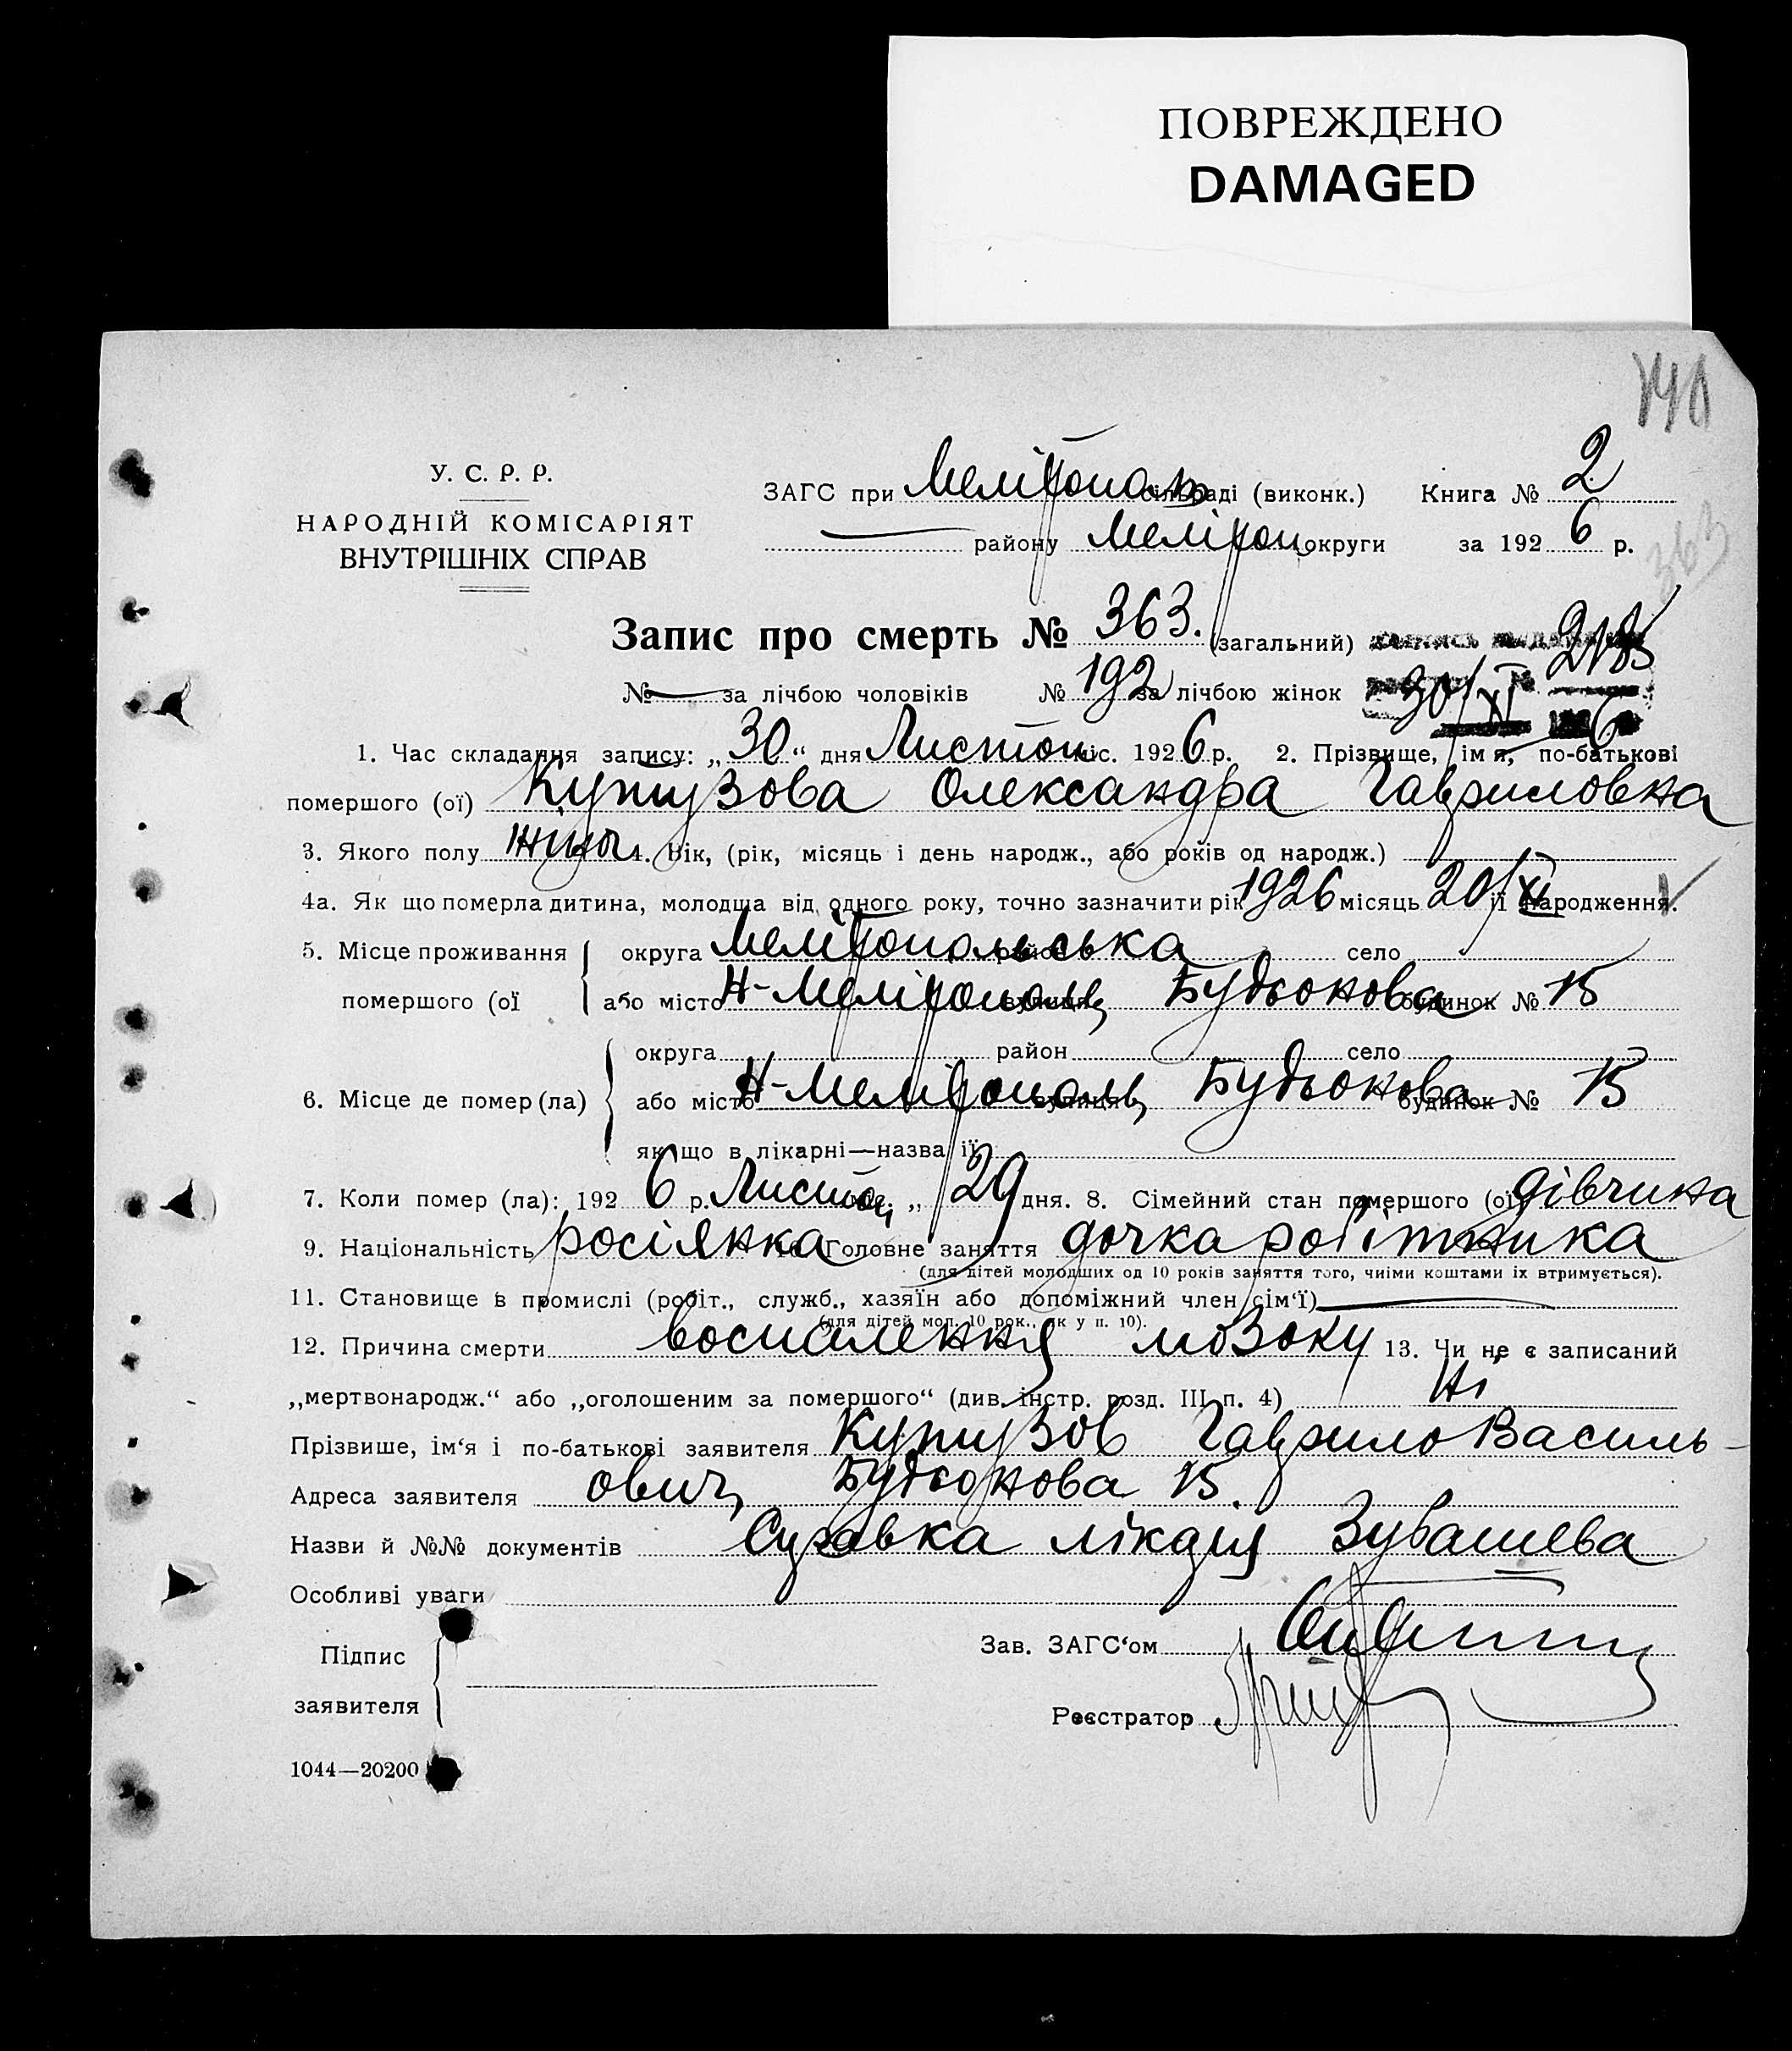 ПОВРЕЖДЕНО
DAMAGED
У. С. Р. Р.
НАРОДНІЙ КОМІСАРІЯТ
ВНУТРІШНІХ СПРАВ
ЗАГС при Мелітопол. сільраді (виконк.) Книга № 2
району Мелітоп. округи за 1926 р.
363
Запис про смерть № 363. (загальний)
218
№ — за лічбою чоловіків № 192 за лічбою жінок
30/XI 6
1. Час складання запису: „30“ дня Листоп. міс. 1926 р. 2. Прізвище, ім'я, по-батькові
помершого (ої) Кутузова Олександра Гавриловна
3. Якого полу жіноч. 4. Вік, (рік, місяць і день народж., або років од народж.)
4а. Як що померла дитина, молодша від одного року, точно зазначити рік 1926 місяць 20/XI її народження.
5. Місце проживання округа Мелітопольська район село
помершого (ої або місто Н-Мелітополь, вулиця Будьонова будинок № 15
округа район село
6. Місце де помер (ла) або місто Н-Мелітополь, вулиця Будьонова будинок № 15
як що в лікарні—назва її
7. Коли помер (ла): 1926 р. Листоп. міс. „29 дня. 8. Сімейний стан помершого (ої) дівчина
9. Національність росіянка 10. Головне заняття дочка робітника
(для дітей молодших од 10 років заняття того, чиїми коштами їх втримується).
11. Становище в промислі (робіт., служб., хазяїн або допоміжний член сім'ї) —
(для дітей мол. 10 рок., як у п. 10).
12. Причина смерти воспалення мозоку 13. Чи не є записаний
„мертвонародж.“ або „оголошеним за помершого“ (див. інстр. розд. III п. 4) Ні
Прізвише, ім'я і по-батькові заявителя Кутузов Гаврило Василь-
Адреса заявителя ович, Будьонова 15.
Назви й №№ документів Справка лікаря Зубашева
Особливі уваги
Підпис
заявителя
Зав. ЗАГС'ом
Реєстратор
1044—20200